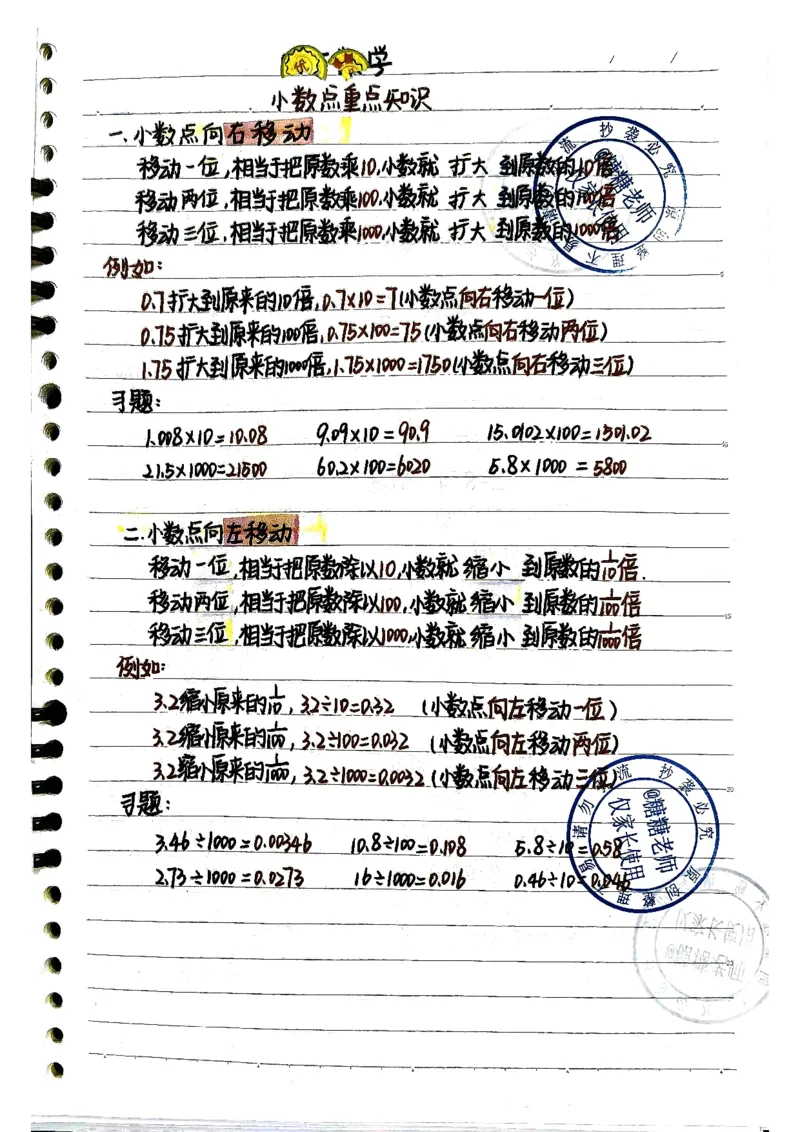 学
小数点重点知识
一.小数点向右移动
移动一位,相当于把原数乘10,小数就 扩大 到原数的10倍
移动两位,相当于把原数乘100,小数就 扩大 到原数的100倍
移动三位,相当于把原数乘1000,小数就 扩大 到原数的1000倍
例如:
0.7扩大到原来的10倍,0.7×10=7(小数点向右移动一位)
0.75扩大到原来的100倍,0.75×100=75(小数点向右移动两位)
1.75扩大到原来的1000倍,1.75×1000=1750(小数点向右移动三位)
习题:
1.008×10=10.08 9.09×10=90.9 15.0102×100=1501.02
21.5×1000=21500 60.2×100=6020 5.8×1000=5800
二.小数点向左移动
移动一位,相当于把原数除以10,小数就 缩小 到原数的1/10倍.
移动两位,相当于把原数除以100,小数就 缩小 到原数的1/100倍
移动三位,相当于把原数除以1000,小数就 缩小 到原数的1/1000倍
例如:
3.2缩小原来的1/10, 3.2÷10=0.32 (小数点向左移动一位)
3.2缩小原来的1/100, 3.2÷100=0.032 (小数点向左移动两位)
3.2缩小原来的1/1000, 3.2÷1000=0.0032(小数点向左移动三位)
习题:
3.46÷1000=0.00346 10.8÷100=0.108 5.8÷10=0.58
2.73÷1000=0.0273 16÷1000=0.016 0.46÷10=0.046
@糖糖老师
仅家长使用
抄袭必究